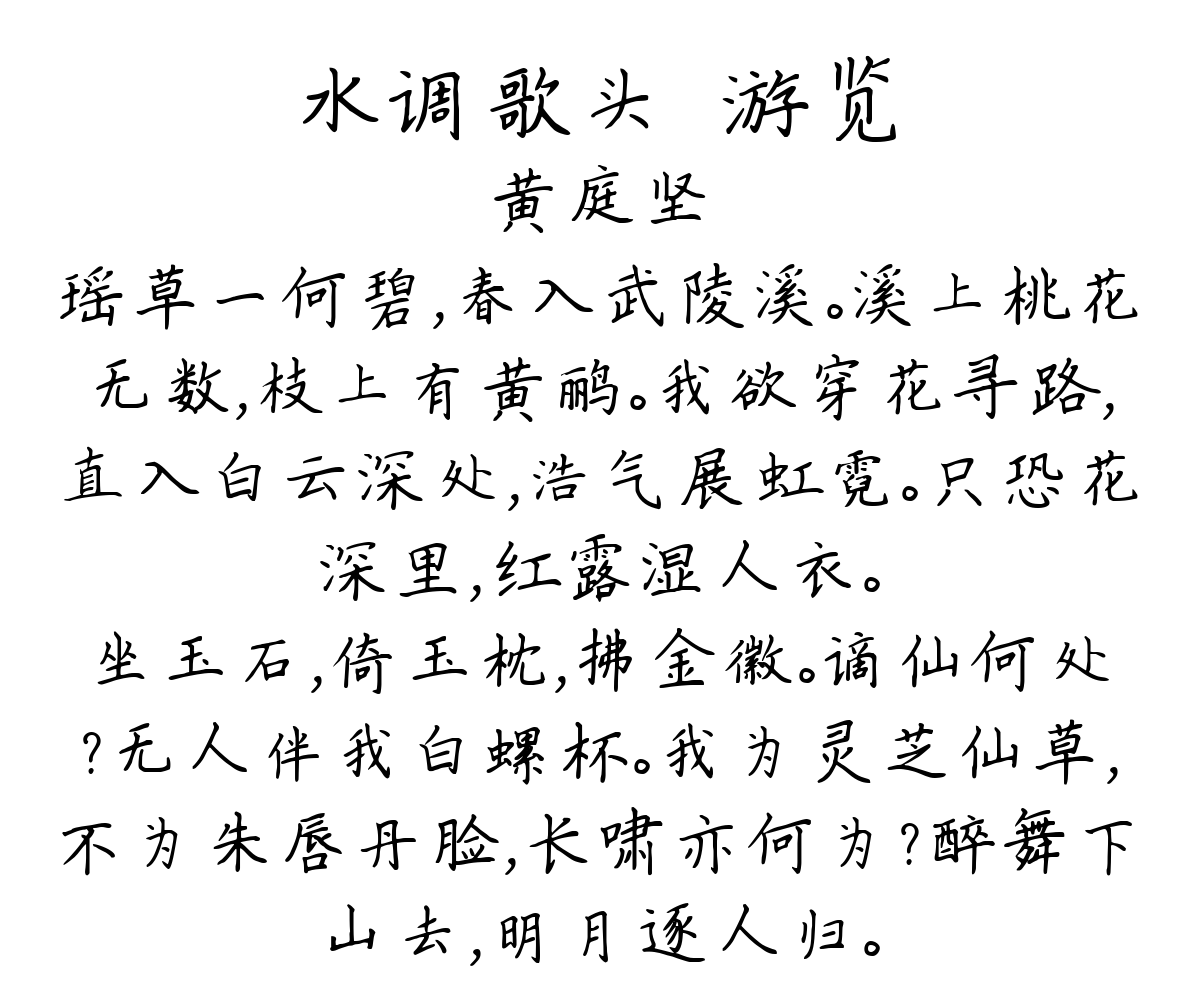 水调歌头 游览
黄庭坚
瑶草一何碧,春入武陵溪。溪上桃花
无数,枝上有黄鹂。我欲穿花寻路,
直入白云深处,浩气展虹霓。只恐花
深里,红露湿人衣。
坐玉石,倚玉枕,拂金徽。谪仙何处
?无人伴我白螺杯。我为灵芝仙草,
不为朱唇丹脸,长啸亦何为?醉舞下
山去,明月逐人归。